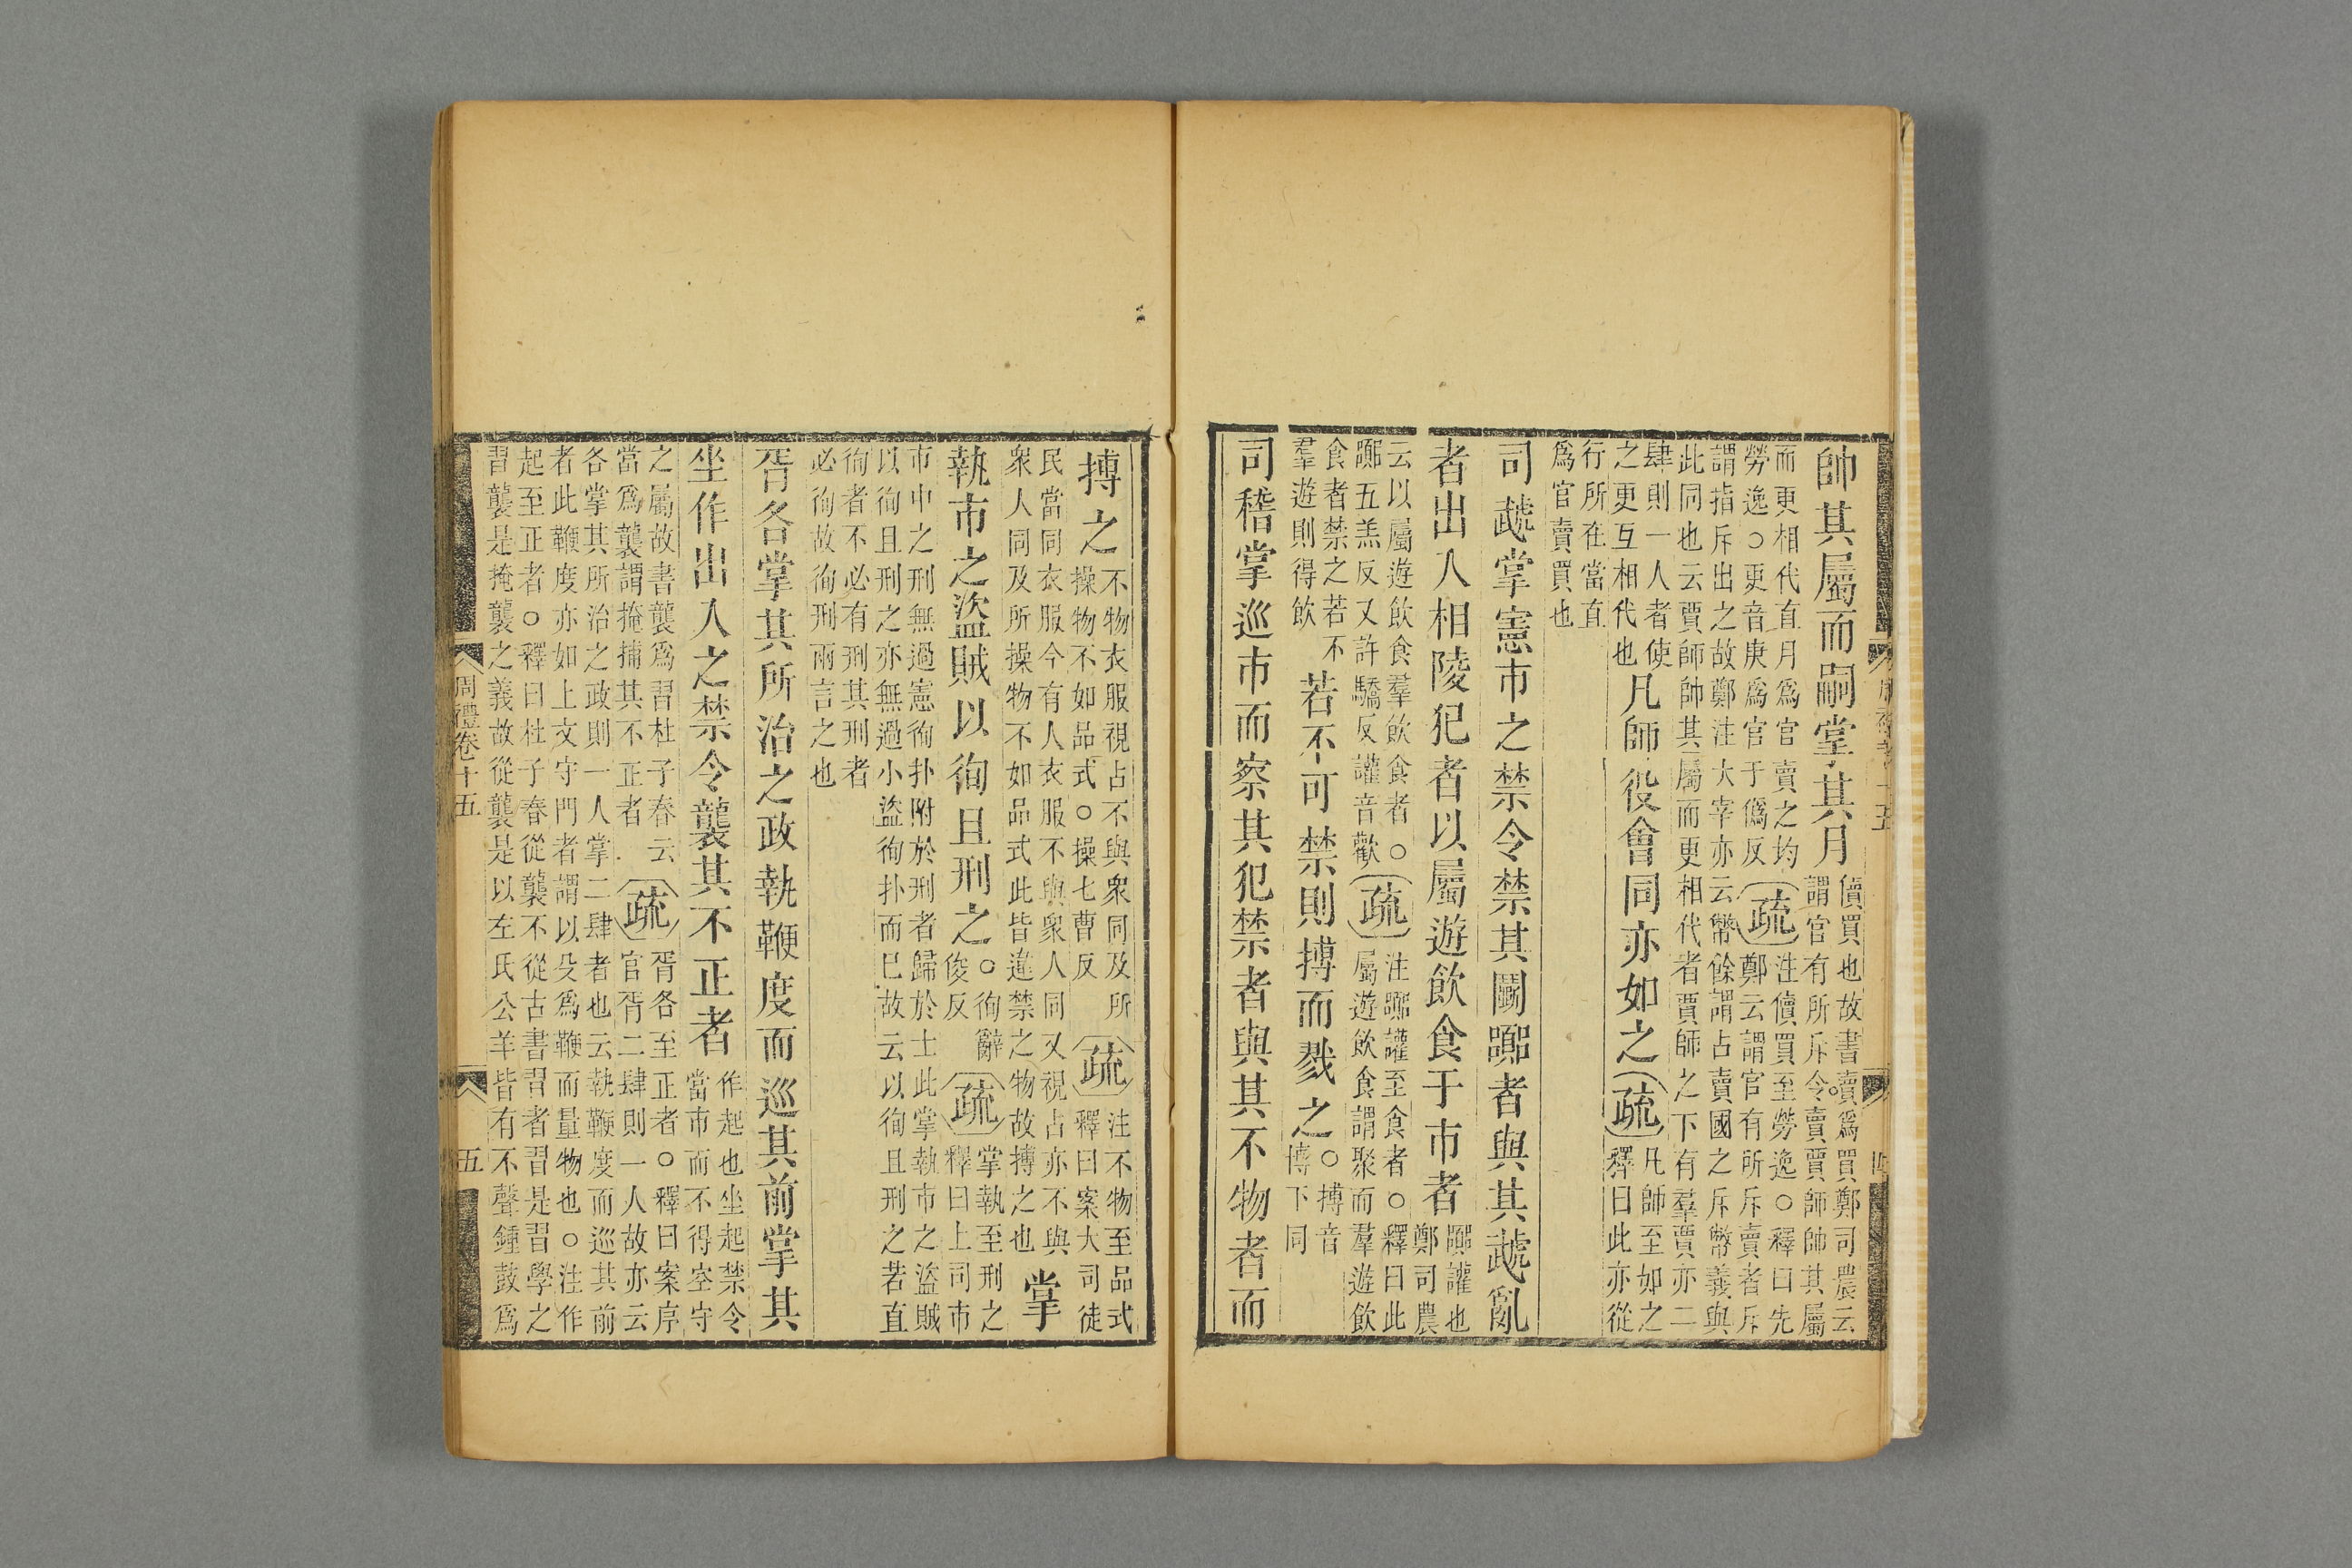 帥其屬而嗣掌其月
儥買也故書賣爲買鄭司農云
謂官有所斥令賣賈師帥其屬
而更相代直月爲官賣之均
勞逸○更音庚爲官于僞反
疏
注儥買至勞逸○釋曰先
鄭云謂官有所斥賣者斥
謂指斥出之故鄭注大宰亦云幣餘謂占賣國之斥幣義與
此同也云賈師帥其屬而更相代者賈師之下有羣賈亦二
肆則一人者使
之更互相代也
凡師役會同亦如之
疏
凡師至如之
釋曰此亦從
行所在當直
爲官賣買也
司虣掌憲市之禁令禁其鬭囂者與其虣亂
者出入相陵犯者以屬遊飲食于市者
囂讙也
鄭司農
云以屬遊飲食羣飲食者○
囂五羔反又許驕反讙音歡
疏
注囂讙至食者○釋曰此
屬遊飲食謂聚而羣遊飲
食者禁之若不
羣遊則得飲
若不可禁則搏而戮之
○搏音
博下同
司稽掌巡市而察其犯禁者與其不物者而
搏之
不物衣服視占不與衆同及所
操物不如品式○操七曹反
疏
注不物至品式
釋曰案大司徒
民當同衣服今有人衣服不與衆人同又視占亦不與
衆人同及所操物不如品式此皆違禁之物故搏之也
掌
執市之盜賊以徇且刑之
○徇辭
俊反
疏
掌執至刑之
釋曰上司市
市中之刑無過憲徇扑附於刑者歸於士此掌執市之盜賊
以徇且刑之亦無過小盜徇扑而已故云以徇且刑之若直
徇者不必有刑其刑者
必徇故徇刑兩言之也
胥各掌其所治之政執鞭度而巡其前掌其
坐作出入之禁令襲其不正者
作起也坐起禁令
當市而不得空守
之屬故書襲爲習杜子春云
當爲襲謂掩捕其不正者
疏
胥各至正者○釋曰案序
官胥二肆則一人故亦云
各掌其所治之政則一人掌二肆者也云執鞭度而巡其前
者此鞭度亦如上文守門者謂以殳爲鞭而量物也○注作
起至正者○釋曰杜子春從襲不從古書習者習是習學之
習襲是掩襲之義故從襲是以左氏公羊皆有不聲鍾鼓爲
周禮卷十五
五